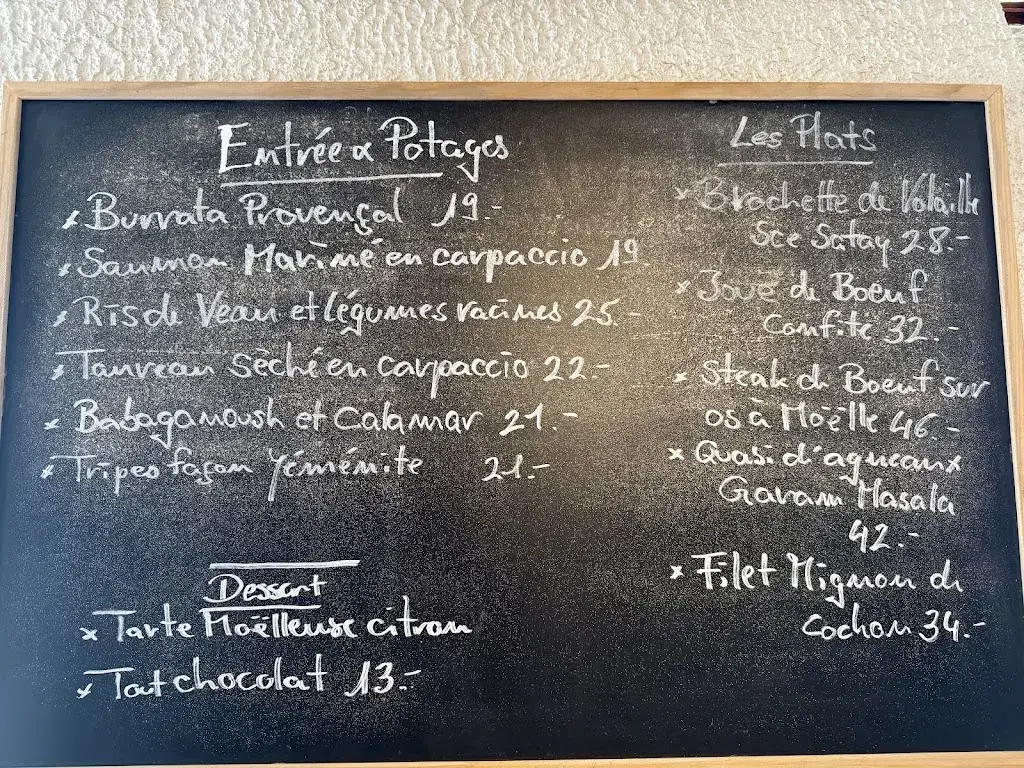 Entrée & Potages
× Burrata Provençal 19.-
× Saumon Mariné en carpaccio 19.
× Ris de Veau et légumes racines 25.-
× Taureau sèché en carpaccio 22.-
× Babaganoush et Calamar 21.-
× Tripes façon Yéménite 21.-
Dessert
× Tarte Moëlleuse citron
× Tout chocolat 13.-
Les Plats
× Brochette de Volaille
Sce Satay 28.-
× Joue de Boeuf
Confite 32.-
× Steak de Boeuf sur
os à Moëlle 46.-
× Quasi d'agneaux
Garam Masala
42.-
× Filet Mignon de
Cochon 34.-